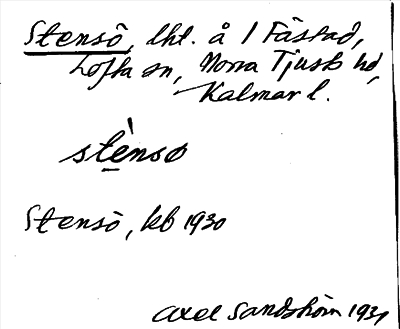 Stensö, lht. å 1 Fästad,
Lofta sn, Norra Tjusts hd,
Kalmar l.
stènso
Stensö, kb 1930
Axel Sandström 1931